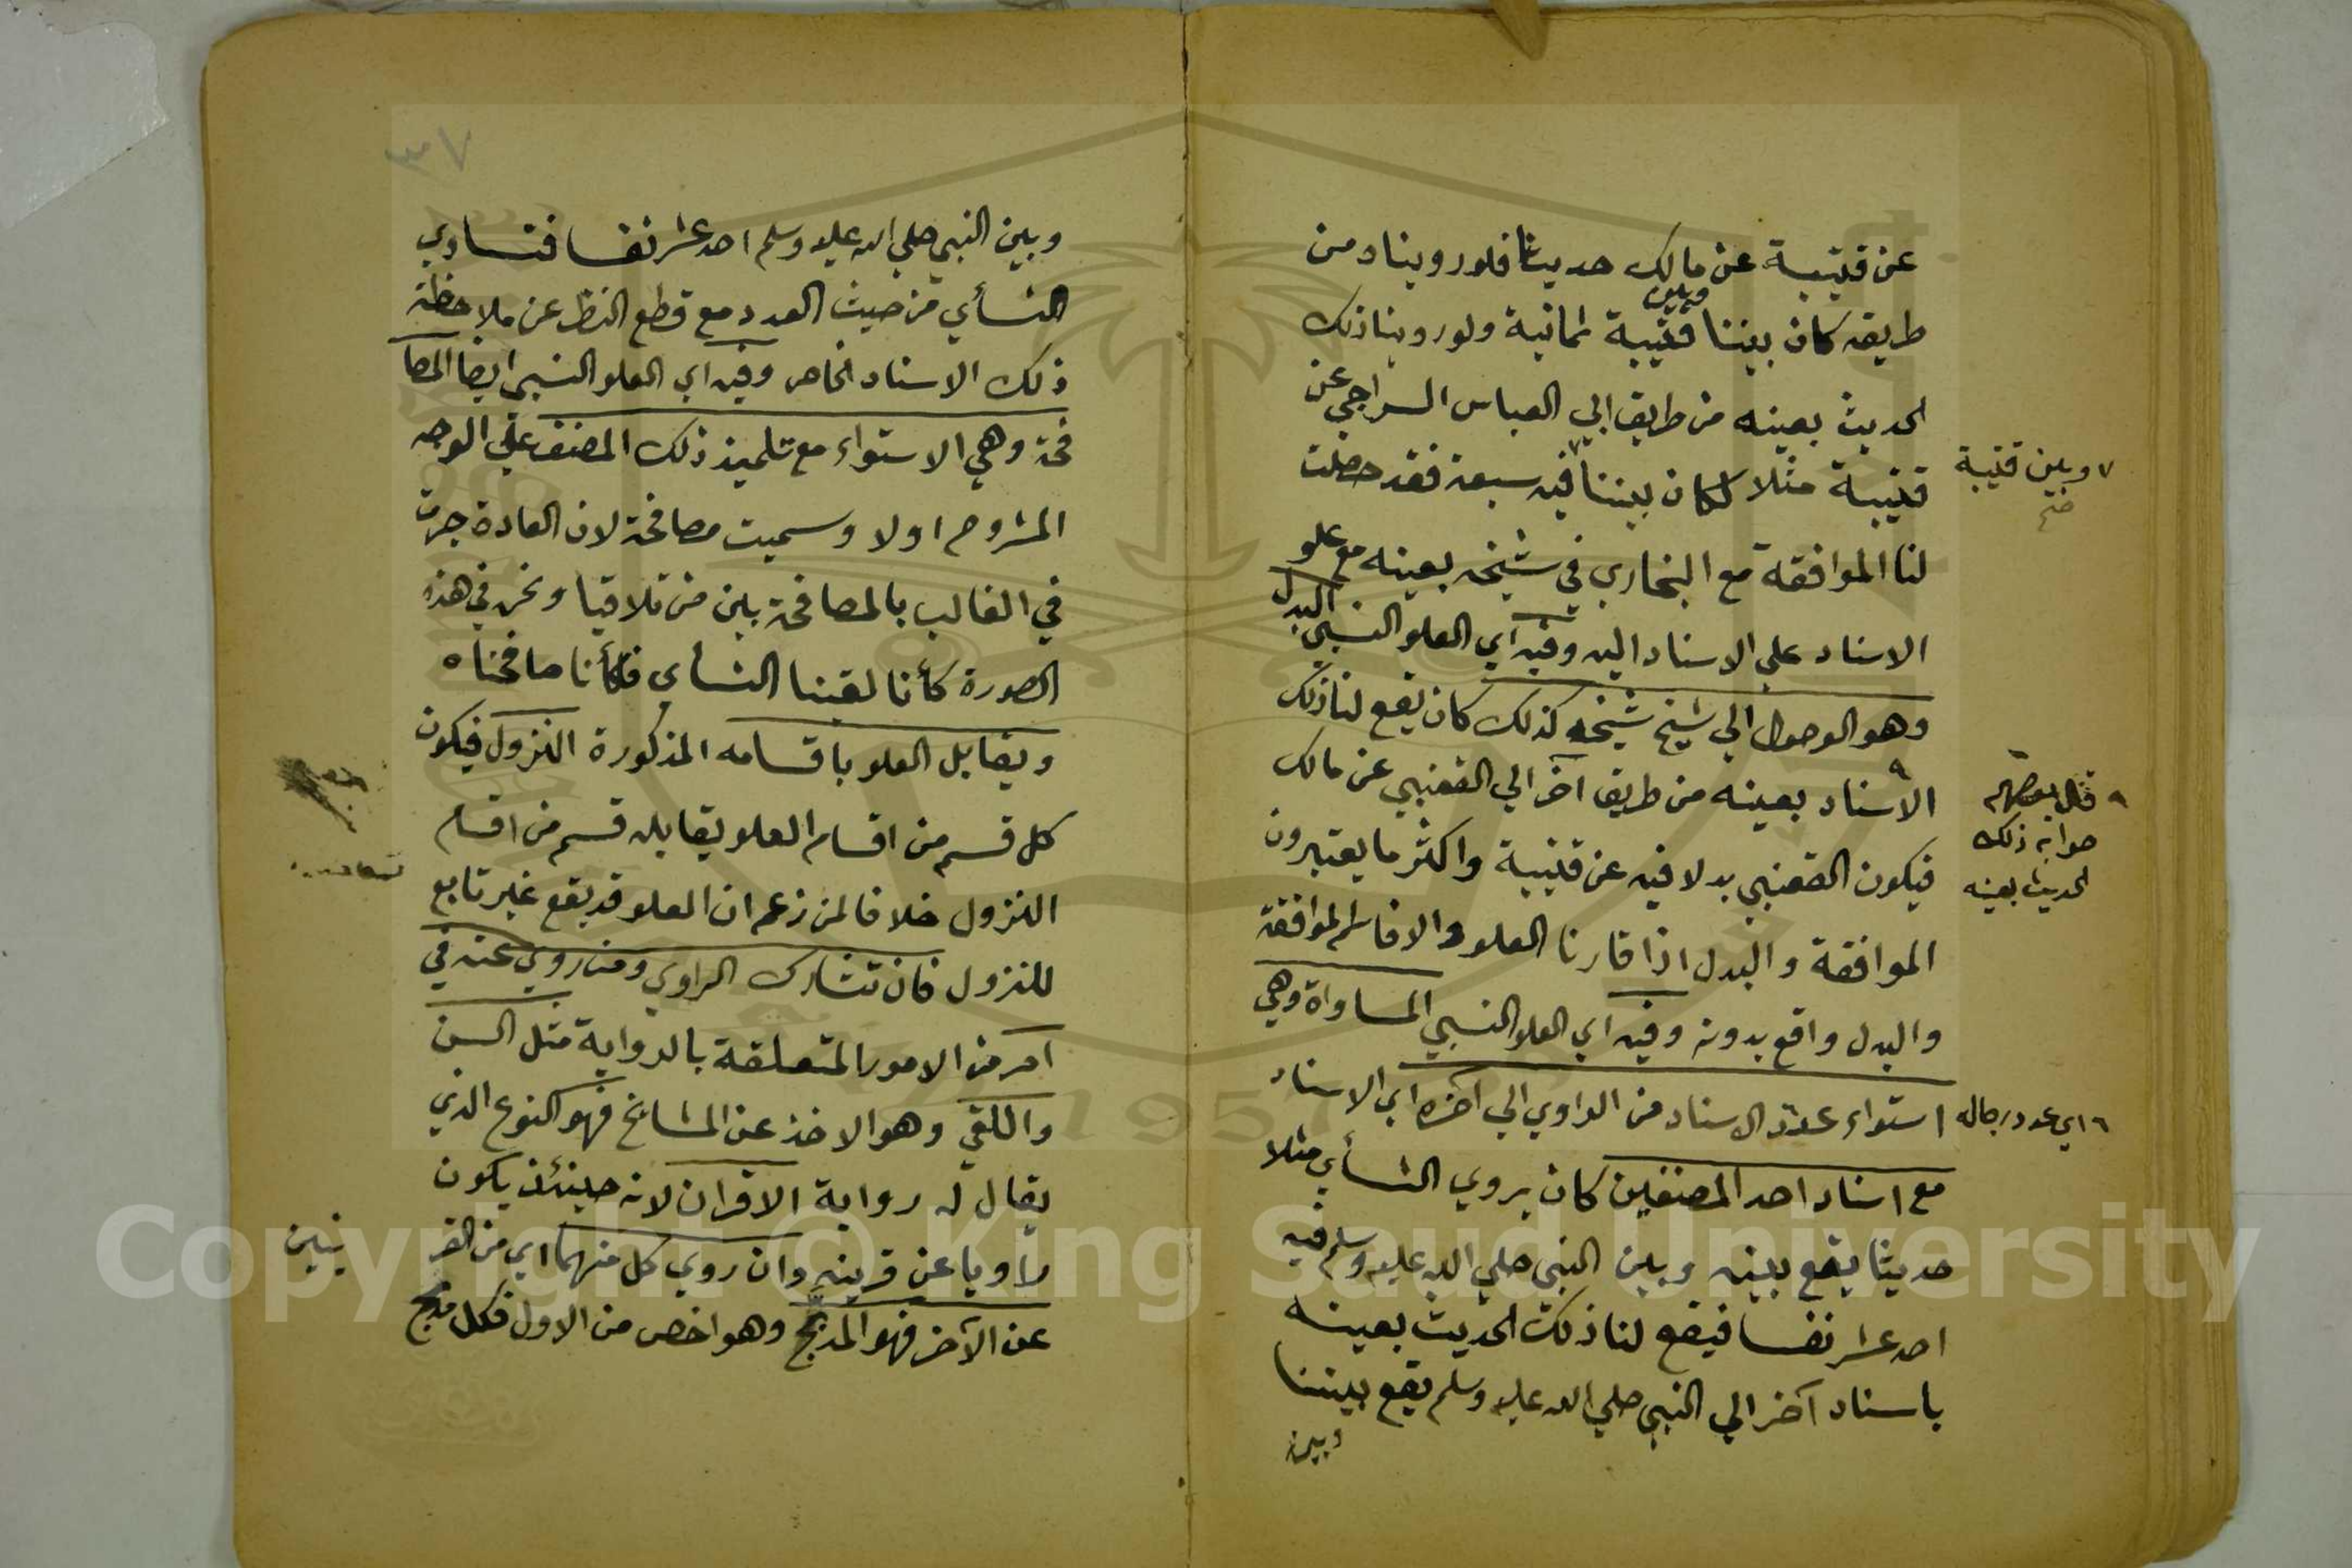 عن قتيبة عن مالك حديثا فلو رويناه من
طريقه كان بيننا وبين قتيبة ثمانية ولو روينا ذلك
الحديث بعينه من طريق ابي العباس السراجي عن
قتيبة مثلا لكان بيننا فيه سبعة فقد حصلت
لنا الموافقة مع البخاري في شيخه بعينه مع علو
الاسناد على الاسناد اليه وفيه اي العلو النسبي البدل
وهو الوصول الي شيخ شيخه كذلك كان يقع لنا ذلك
الاسناد بعينه من طريق آخر الي القعنبي عن مالك
فيكون القعنبي بدلا فيه عن قتيبة واكثر ما يعتبرون
الموافقة والبدل اذا قارنا العلو والا فاسم الموافقة
والبدل واقع بدونه وفيه اي العلو النسبي المساواة وهي
استواء عدد الاسناد من الراوي الي آخره اي الاسناد
مع اسناد احد المصنفين كان يروي النسأي مثلا
حديثا يقع بينه وبين النبي صلي الله عليه وسلم فيه
احد عشر نفسا فيقع لنا ذلك الحديث بعينه
باسناد آخر الي النبي صلي الله عليه وسلم يقع بيننا
وبين
٧ وبين قتيبة
صح
٩ قال بعضهم
صوابه ذلك
الحديث بعينه
٦ اي عدد رجاله
٣٧
وبين النبي صلي الله عليه وسلم احد عشر نفسا فنساوي
النسأي من حيث العدد مع قطع النظر عن ملاحظة
ذلك الاسناد الخاص وفيه اي العلو النسبي ايضا المصا
فحة وهي الاستواء مع تلميذ ذلك المصنف علي الوجه
المشروح اولا وسميت مصافحة لان العادة جرت
في الغالب بالمصافحة بين من تلاقيا ونحن في هذه
الصورة كأنا لقينا النسأي فكأنا صافحناه
ويقابل العلو باقسامه المذكورة النزول فيكون
كل قسم من اقسام العلو يقابله قسم من اقسام
النزول خلافا لمن زعم ان العلو قد يقع غير تابع
للنزول فان تشارك الراوي ومن روي عنه في
امر من الامور المتعلقة بالرواية مثل السن
واللقي وهو الاخذ عن المشائخ فهو النوع الذي
يقال له رواية الاقران لانه حينئذ يكون
راويا عن قرينه وان روي كل منهما اي من القر ينين
عن الآخر فهو المدبج وهو اخص من الاول فكل مدبج
Copyright © King Saud University
1957